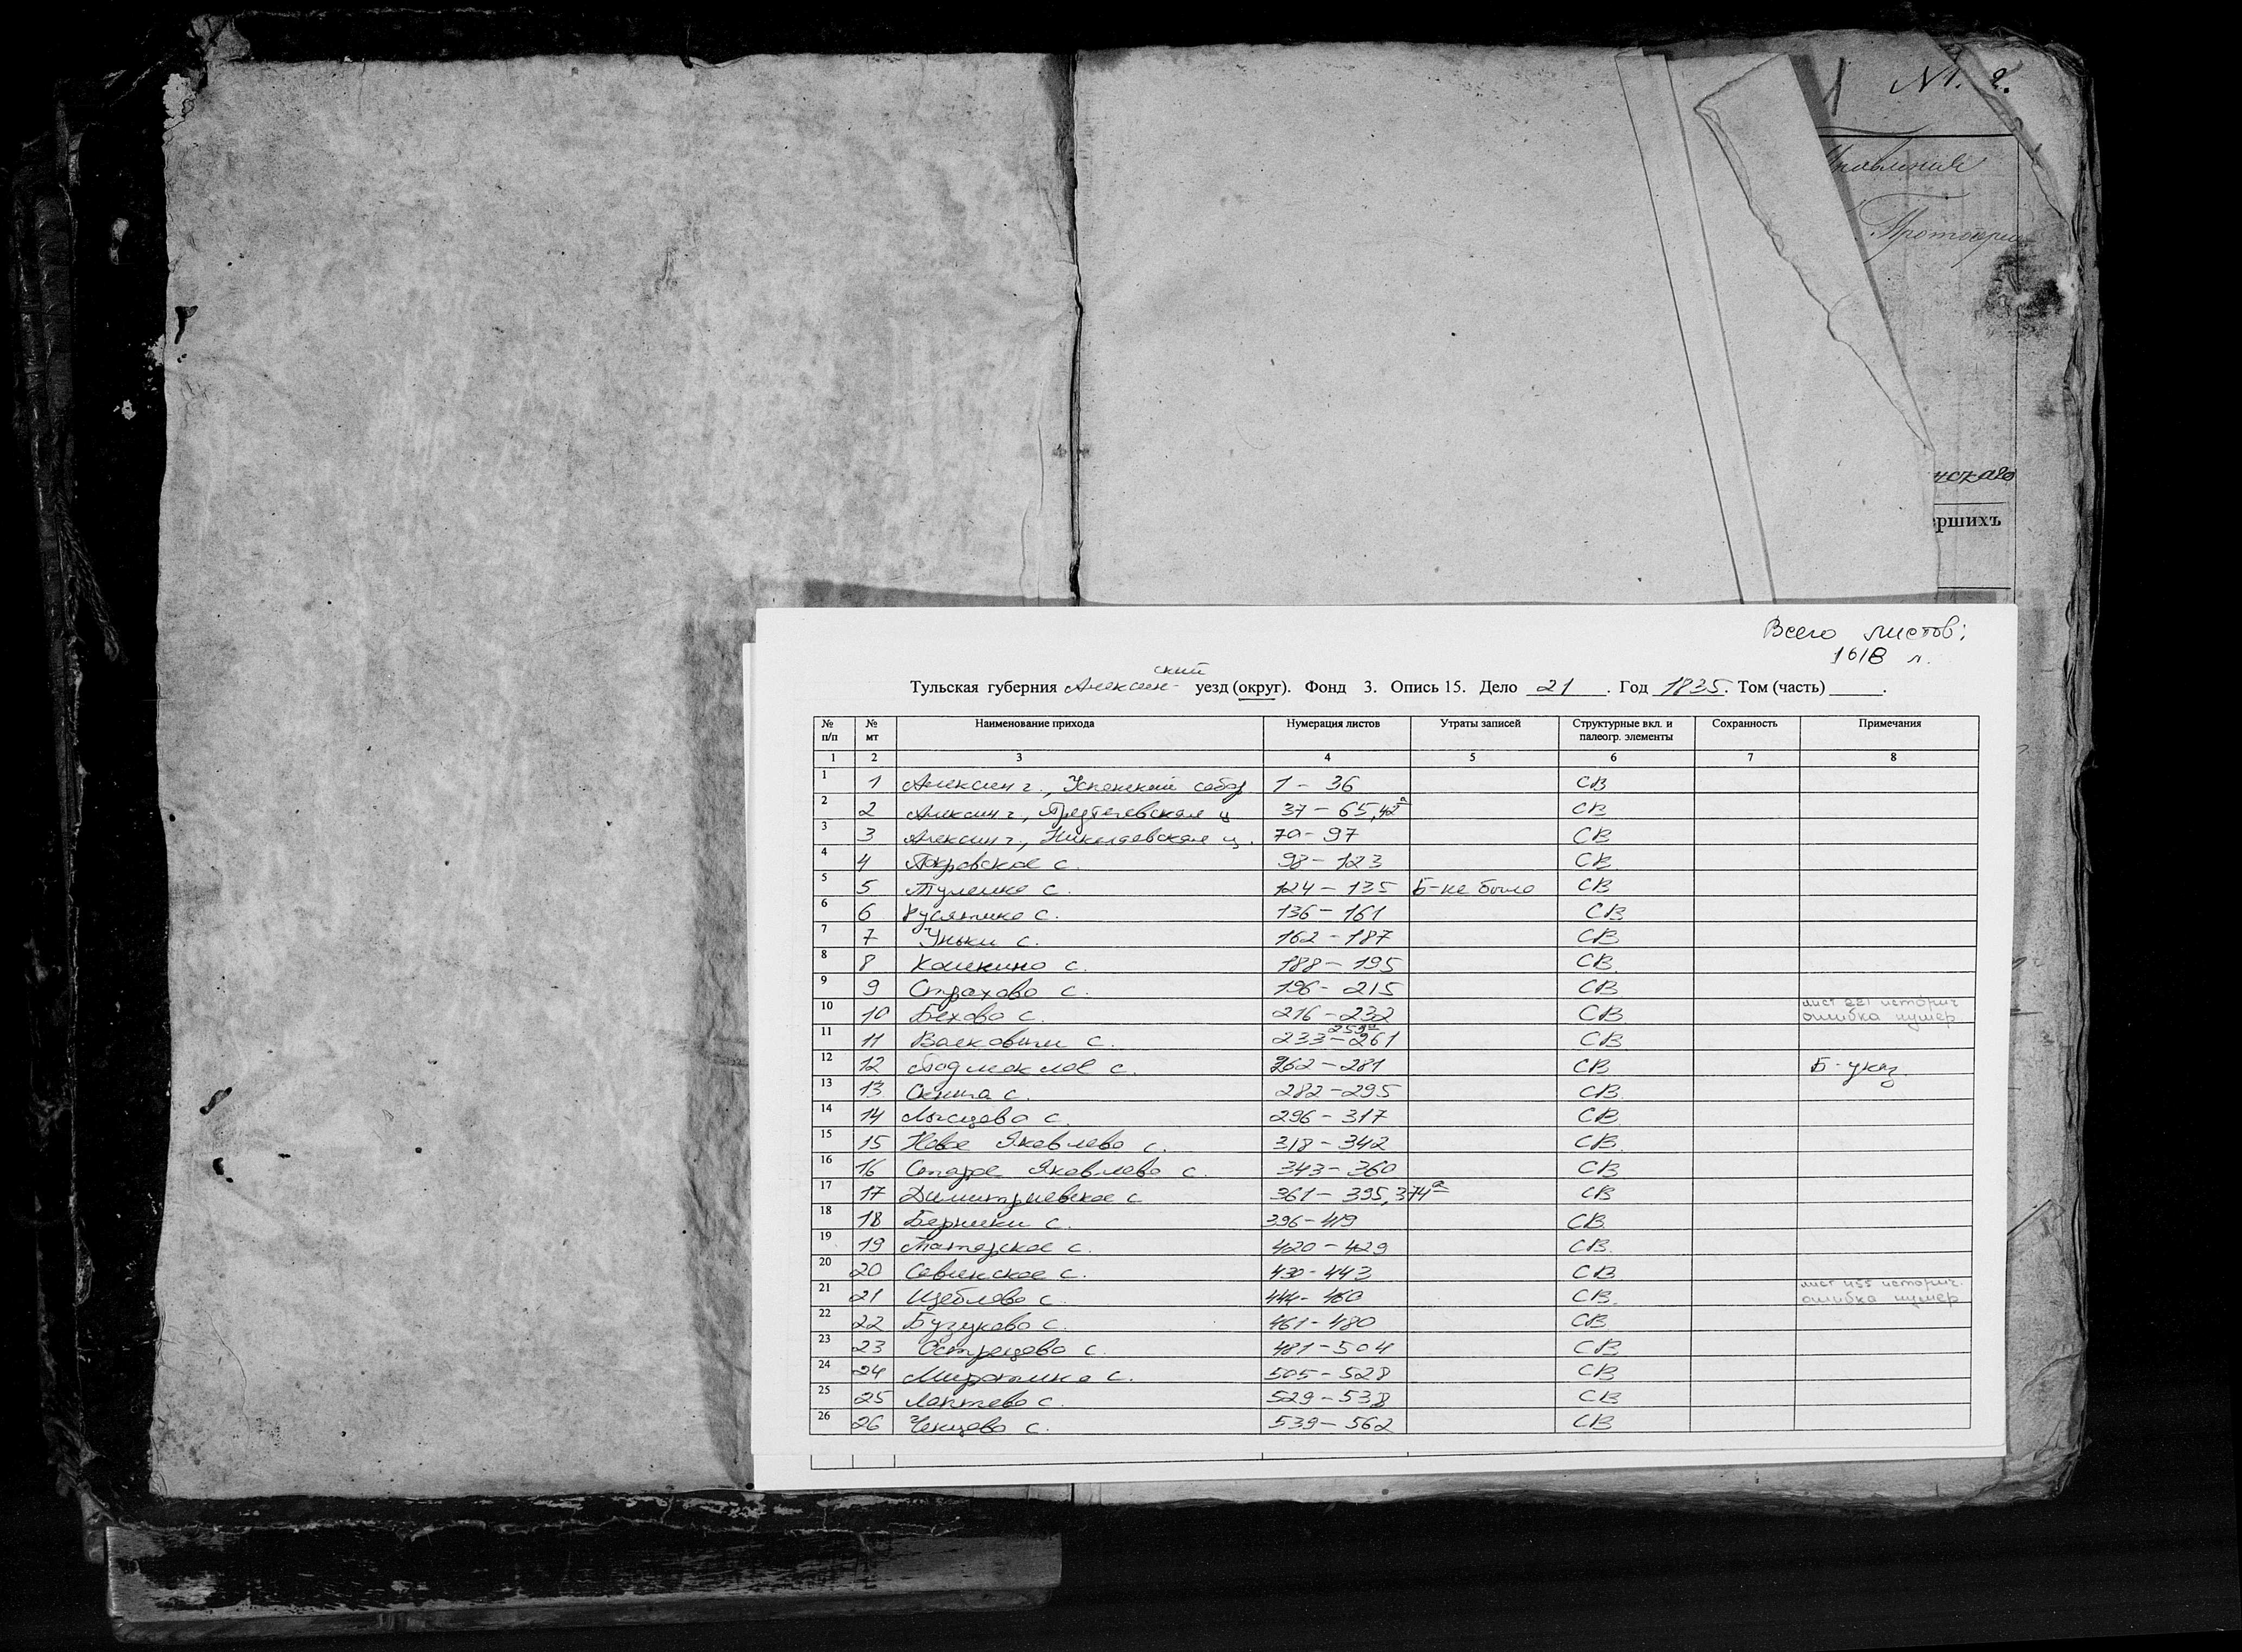 N 1. 2.
Протоіерея
нскаго
ершихъ
Всего листов:
1618 л.
Тульская губерния Алексинский уезд (округ). Фонд 3. Опись 15. Дело 21. Год 1835. Том (часть) ____.
№ п/п № мт Наименование прихода Нумерация листов Утраты записей Структурные вкл. и палеогр. элементы Сохранность Примечания
1 2 3 4 5 6 7 8
1 1 Алексин г., Успенский собор 1 - 36 СВ
2 2 Алексин г., Предтечевская ц. 37 - 65, 42а СВ
3 3 Алексин г., Николаевская ц. 70 - 97 СВ
4 4 Покровское с. 98 - 123 СВ
5 5 Тулеино с. 124 - 135 Б-не было СВ
6 6 Русятино с. 136 - 161 СВ
7 7 Уньки с. 162 - 187 СВ
8 8 Кошкино с. 188 - 195 СВ
9 9 Страхово с. 196 - 215 СВ
10 10 Бехово с. 216 - 232 СВ лист 221 историч. ошибка нумер
11 11 Васковичи с. 233 - 261 259а СВ
12 12 Подмоклое с. 262 - 281 СВ Б-укр.
13 13 с. 282 - 295 СВ
14 14 Лысцево с. 296 - 317 СВ
15 15 Новое Яковлево с. 318 - 342 СВ
16 16 Старое Яковлево с. 343 - 360 СВ
17 17 Димитриевское с 361 - 395, 374а СВ
18 18 Берники с. 396 - 419 СВ
19 19 Татарское с. 420 - 429 СВ
20 20 Савинское с. 430 - 443 СВ
21 21 Щеблово с. 444 - 460 СВ лист 455 историч. ошибка нумер
22 22 Бузуково с. 461 - 480 СВ
23 23 Острецово с. 481 - 504 СВ
24 24 Миротино с. 505 - 528 СВ
25 25 Лаптево с. 529 - 538 СВ
26 26 Ченцово с. 539 - 562 СВ